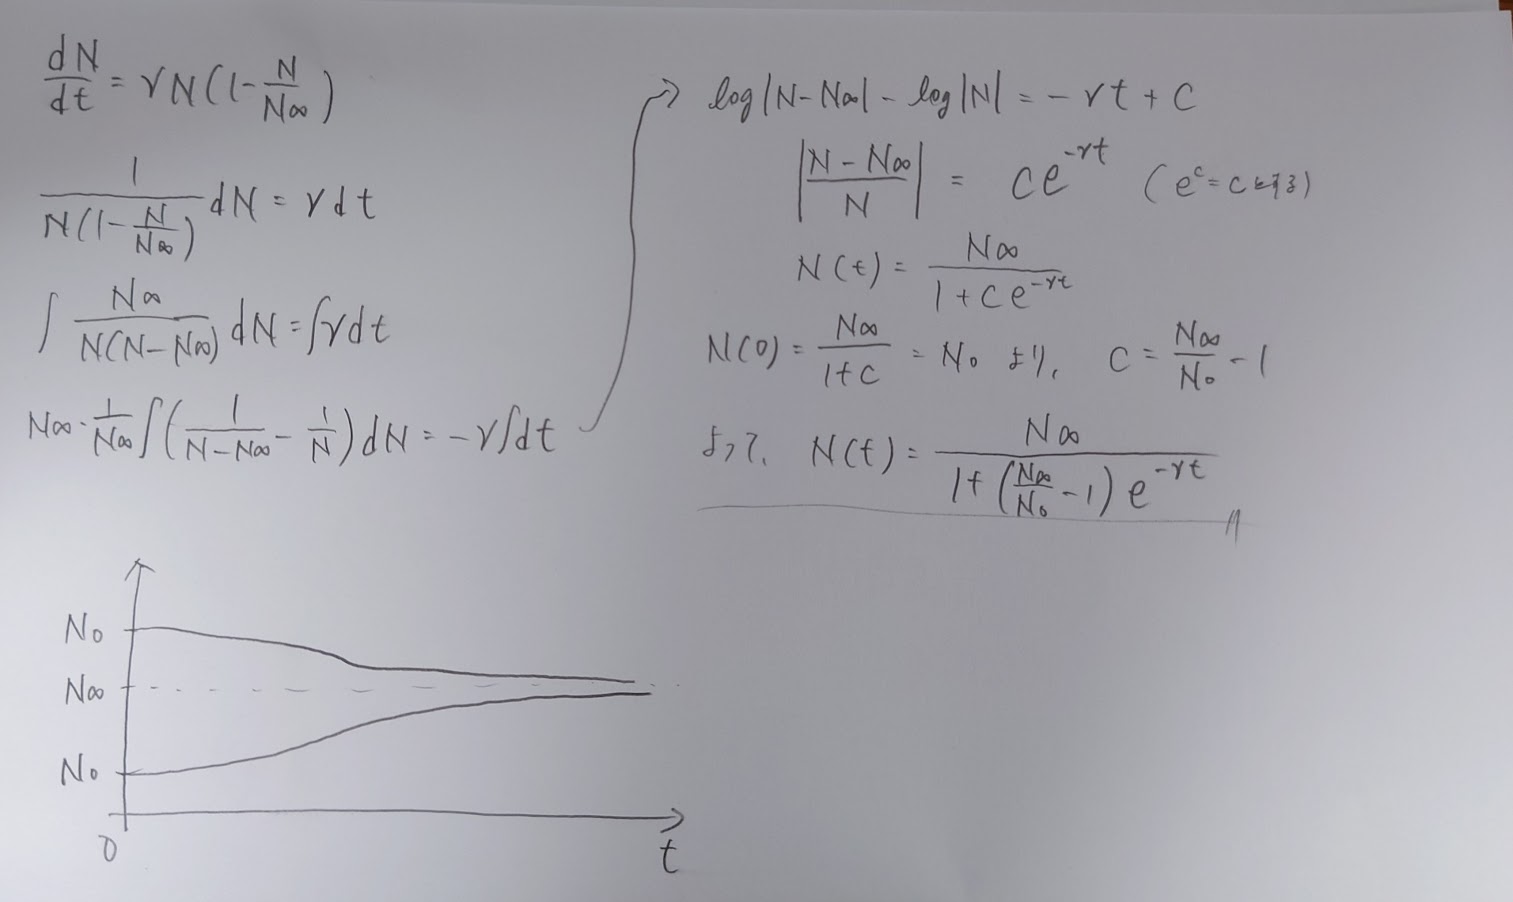 dN/dt = rN(1 - N/N∞)
1/(N(1 - N/N∞)) dN = r dt
∫ N∞/(N(N - N∞)) dN = ∫r dt
N∞ · 1/N∞ ∫(1/(N - N∞) - 1/N) dN = -r∫dt
→ log|N - N∞| - log|N| = -rt + C
|(N - N∞)/N| = ce^(-rt) (e^c = cとする)
N(t) = N∞/(1 + ce^(-rt))
N(0) = N∞/(1 + c) = N₀ より、 C = N∞/N₀ - 1
よって、 N(t) = N∞/(1 + (N∞/N₀ - 1)e^(-rt))
N₀
N∞
N₀
0
t